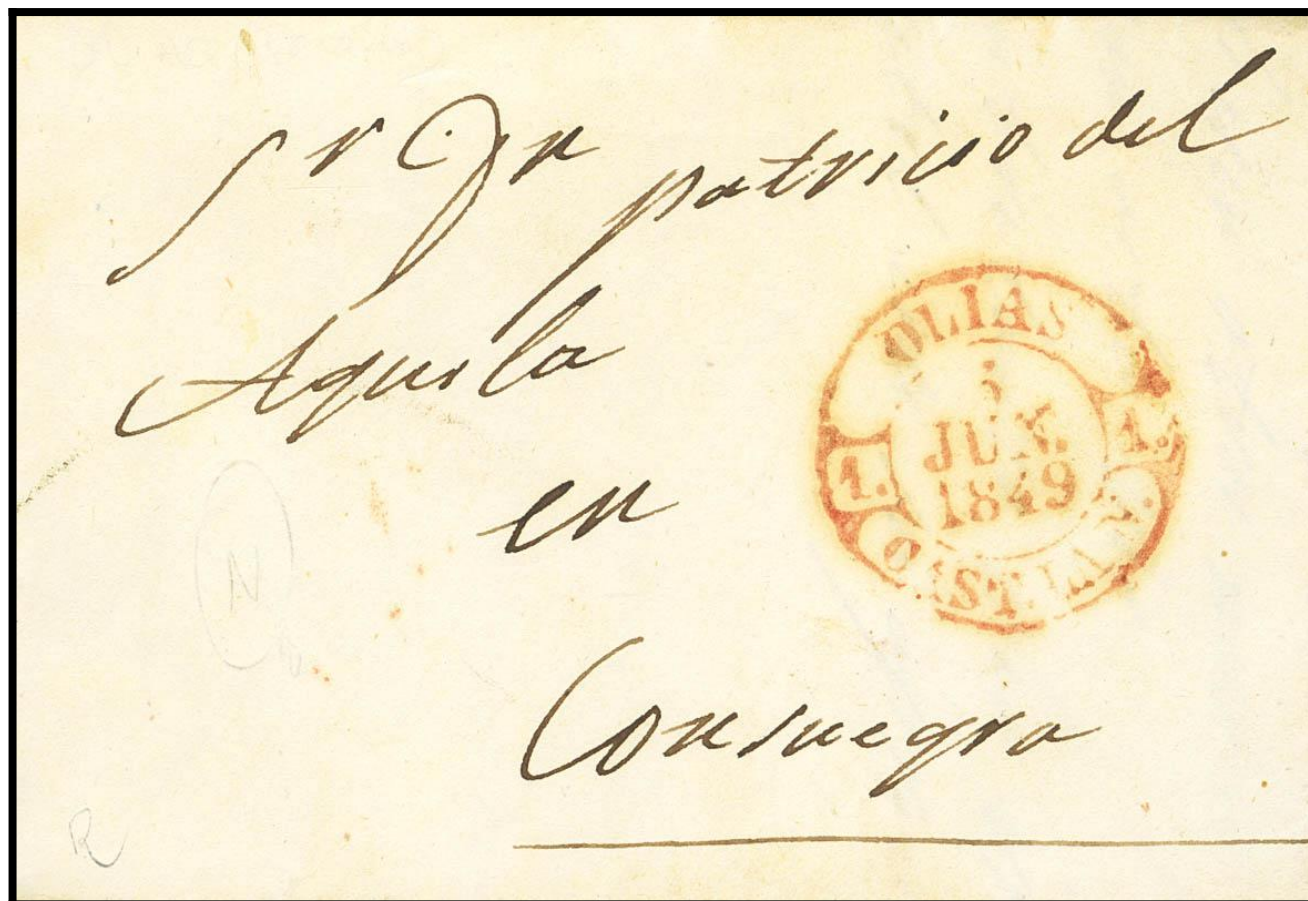 Sr Dn patricio del
Aquila
en
Consuegra
OLIAS
5
JUN.
1849
1.
1.
CAST. LA N.
N
R